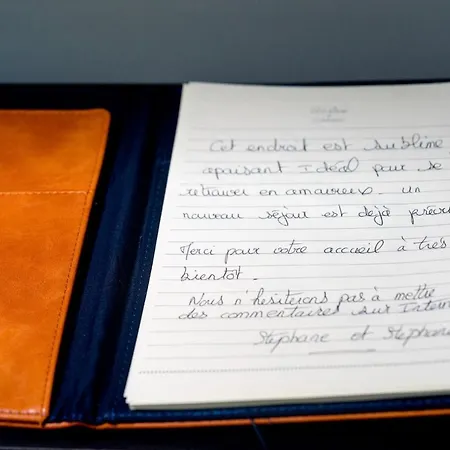 Cet endroit est sublime
apaisant Idéal pour se
retrouver en amoureux. un
nouveau séjour est déjà prévu
Merci pour votre accueil à très
bientôt.
Nous n'hésiterons pas à mettre
des commentaires sur Intern
Stéphane et Stéphanie